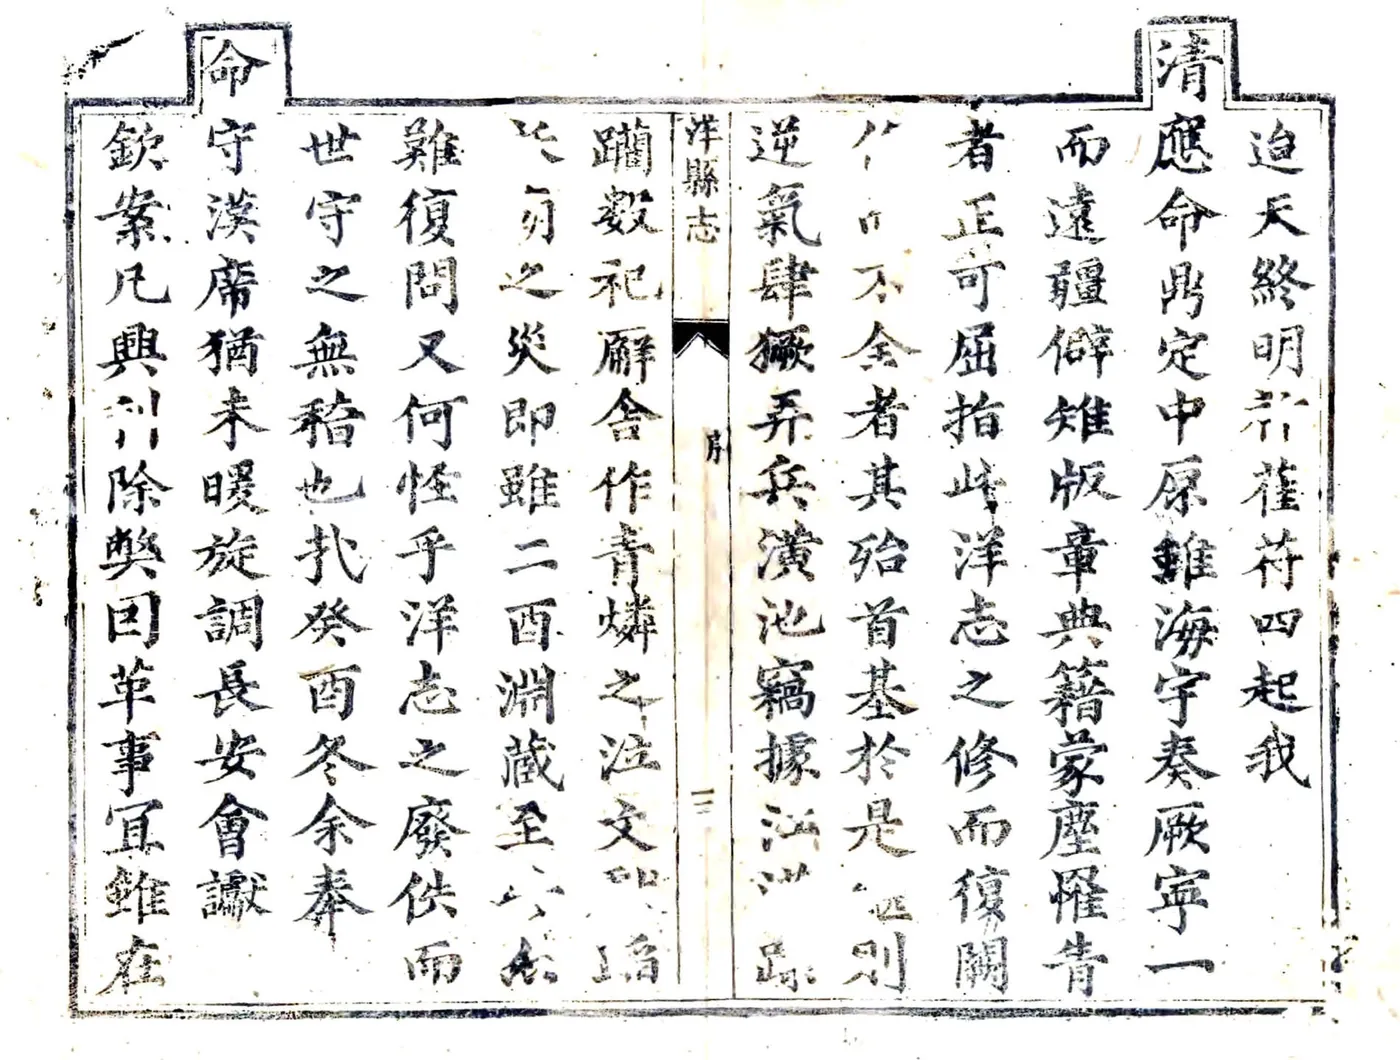 迨天終明祚萑苻四起我
清應命鼎定中原雖海宇奏厥寧一
而遠疆僻雉版章典籍蒙塵罹眚
者正可屈指此洋志之修而復闕
不全者其殆首基於是則
逆氣肆獗弄兵潢池竊據江洪
洋縣志
序
三
躪數祀廨舍作青燐之泣文
之災即雖二酉淵藏至
難復問又何怪乎洋志之廢佚而
世守之無稽也扎癸酉冬余奉
命
守漢席猶未暖旋調長安會讞
欽案凡興利除弊因革事宜雖在